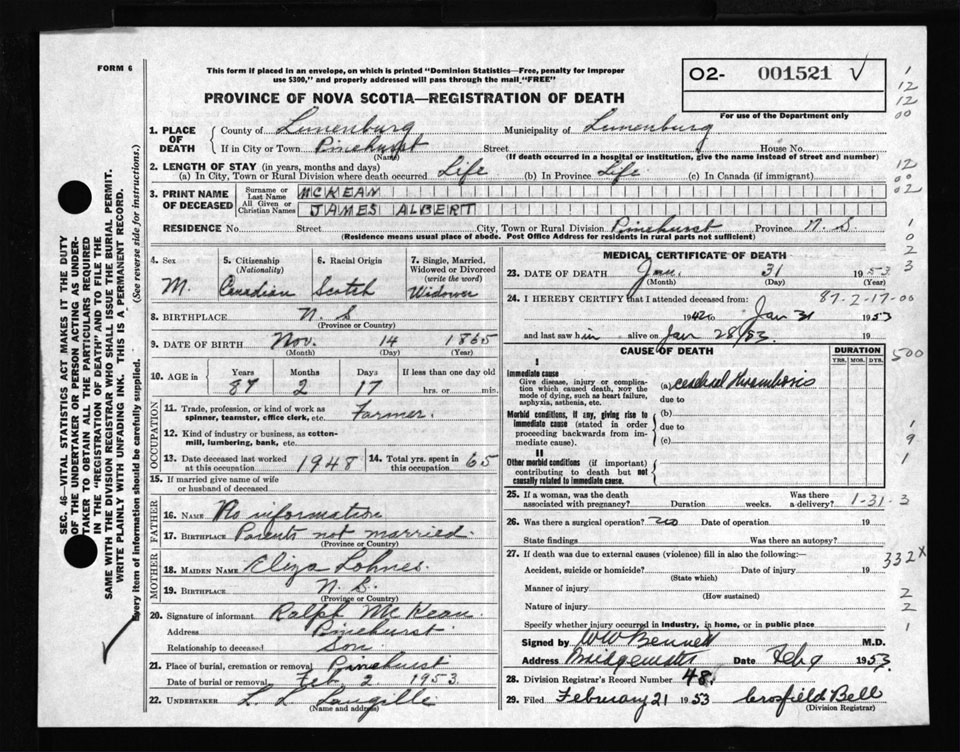 FORM 6
This form if placed in an envelope, on which is printed "Dominion Statistics—Free, penalty for improper
use $300," and properly addressed will pass through the mail "FREE"
O2- 001521 √
PROVINCE OF NOVA SCOTIA—REGISTRATION OF DEATH
For use of the Department only
1. PLACE OF DEATH
County of Lunenburg Municipality of Lunenburg
If in City or Town Pinehurst Street House No.
(Name) (If death occurred in a hospital or institution, give the name instead of street and number)
2. LENGTH OF STAY (in years, months and days)
(a) In City, Town or Rural Division where death occurred Life (b) In Province Life (c) In Canada (if immigrant)
3. PRINT NAME OF DECEASED
Surname or Last Name MCKEAN
All Given or Christian Names JAMES ALBERT
RESIDENCE No. Street City, Town or Rural Division Pinehurst Province N. S.
(Residence means usual place of abode. Post Office Address for residents in rural parts not sufficient)
4. Sex
M.
5. Citizenship
(Nationality)
Canadian
6. Racial Origin
Scotch
7. Single, Married, Widowed or Divorced
(write the word)
Widower
8. BIRTHPLACE N. S
(Province or Country)
9. DATE OF BIRTH Nov. 14 1865
(Month) (Day) (Year)
10. AGE in
Years Months Days If less than one day old
87 2 17 hrs. or min.
OCCUPATION
11. Trade, profession, or kind of work as
spinner, teamster, office clerk, etc. Farmer.
12. Kind of industry or business, as cotton-
mill, lumbering, bank, etc.
13. Date deceased last worked
at this occupation 1948
14. Total yrs. spent in
this occupation 65
15. If married give name of wife
or husband of deceased
FATHER
16. NAME No information
17. BIRTHPLACE Parents not married.
(Province or Country)
MOTHER
18. MAIDEN NAME Eliza Lohnes.
19. BIRTHPLACE N. S.
(Province or Country)
20. Signature of informant Ralph McKean.
Address Pinehurst
Relationship to deceased Son
21. Place of burial, cremation or removal Pinehurst
Date of burial or removal Feb. 2. 1953.
22. UNDERTAKER L. L. Langille
(Name and address)
MEDICAL CERTIFICATE OF DEATH
23. DATE OF DEATH Jan. 31 1953
(Month) (Day) (Year)
24. I HEREBY CERTIFY that I attended deceased from:
87-2-17-00
1942 to Jan 31 1953
and last saw him alive on Jan 28/53. 19
CAUSE OF DEATH DURATION
YRS. MOS. DYS.
I
Immediate cause
Give disease, injury or complica-
tion which caused death, NOT the
mode of dying, such as heart failure,
asphyxia, asthenia, etc.
(a) cerebral thrombosis
due to
Morbid conditions, if any, giving rise to
immediate cause (stated in order
proceeding backwards from im-
mediate cause).
(b)
due to
(c)
II
Other morbid conditions (if important)
contributing to death but not
causally related to immediate cause.
25. If a woman, was the death Was there
associated with pregnancy? Duration weeks. a delivery? 1-31-3
26. Was there a surgical operation? no Date of operation 19
State findings Was there an autopsy?
27. If death was due to external causes (violence) fill in also the following:—
332X
Accident, suicide or homicide? Date of injury 19
(State which)
Manner of injury
(How sustained)
Nature of injury
Specify whether injury occurred in industry, in home, or in public place
Signed by W W Bennett M.D.
Address Bridgewater Date Feb 9 1953.
28. Division Registrar's Record Number 48.
29. Filed February 21 1953 Crosfield Bell
(Division Registrar)
1
12
12
00
12
00
02
1
0
2
3
500
1
9
1
2
2
1
SEC. 46—VITAL STATISTICS ACT MAKES IT THE DUTY
OF THE UNDERTAKER OR PERSON ACTING AS UNDER-
TAKER TO OBTAIN ALL THE PARTICULARS REQUIRED
IN THE "REGISTRATION OF DEATH" AND TO FILE THE
SAME WITH THE DIVISION REGISTRAR WHO SHALL ISSUE THE BURIAL PERMIT.
WRITE PLAINLY WITH UNFADING INK. THIS IS A PERMANENT RECORD.
Every item of information should be carefully supplied. (See reverse side for instructions.)